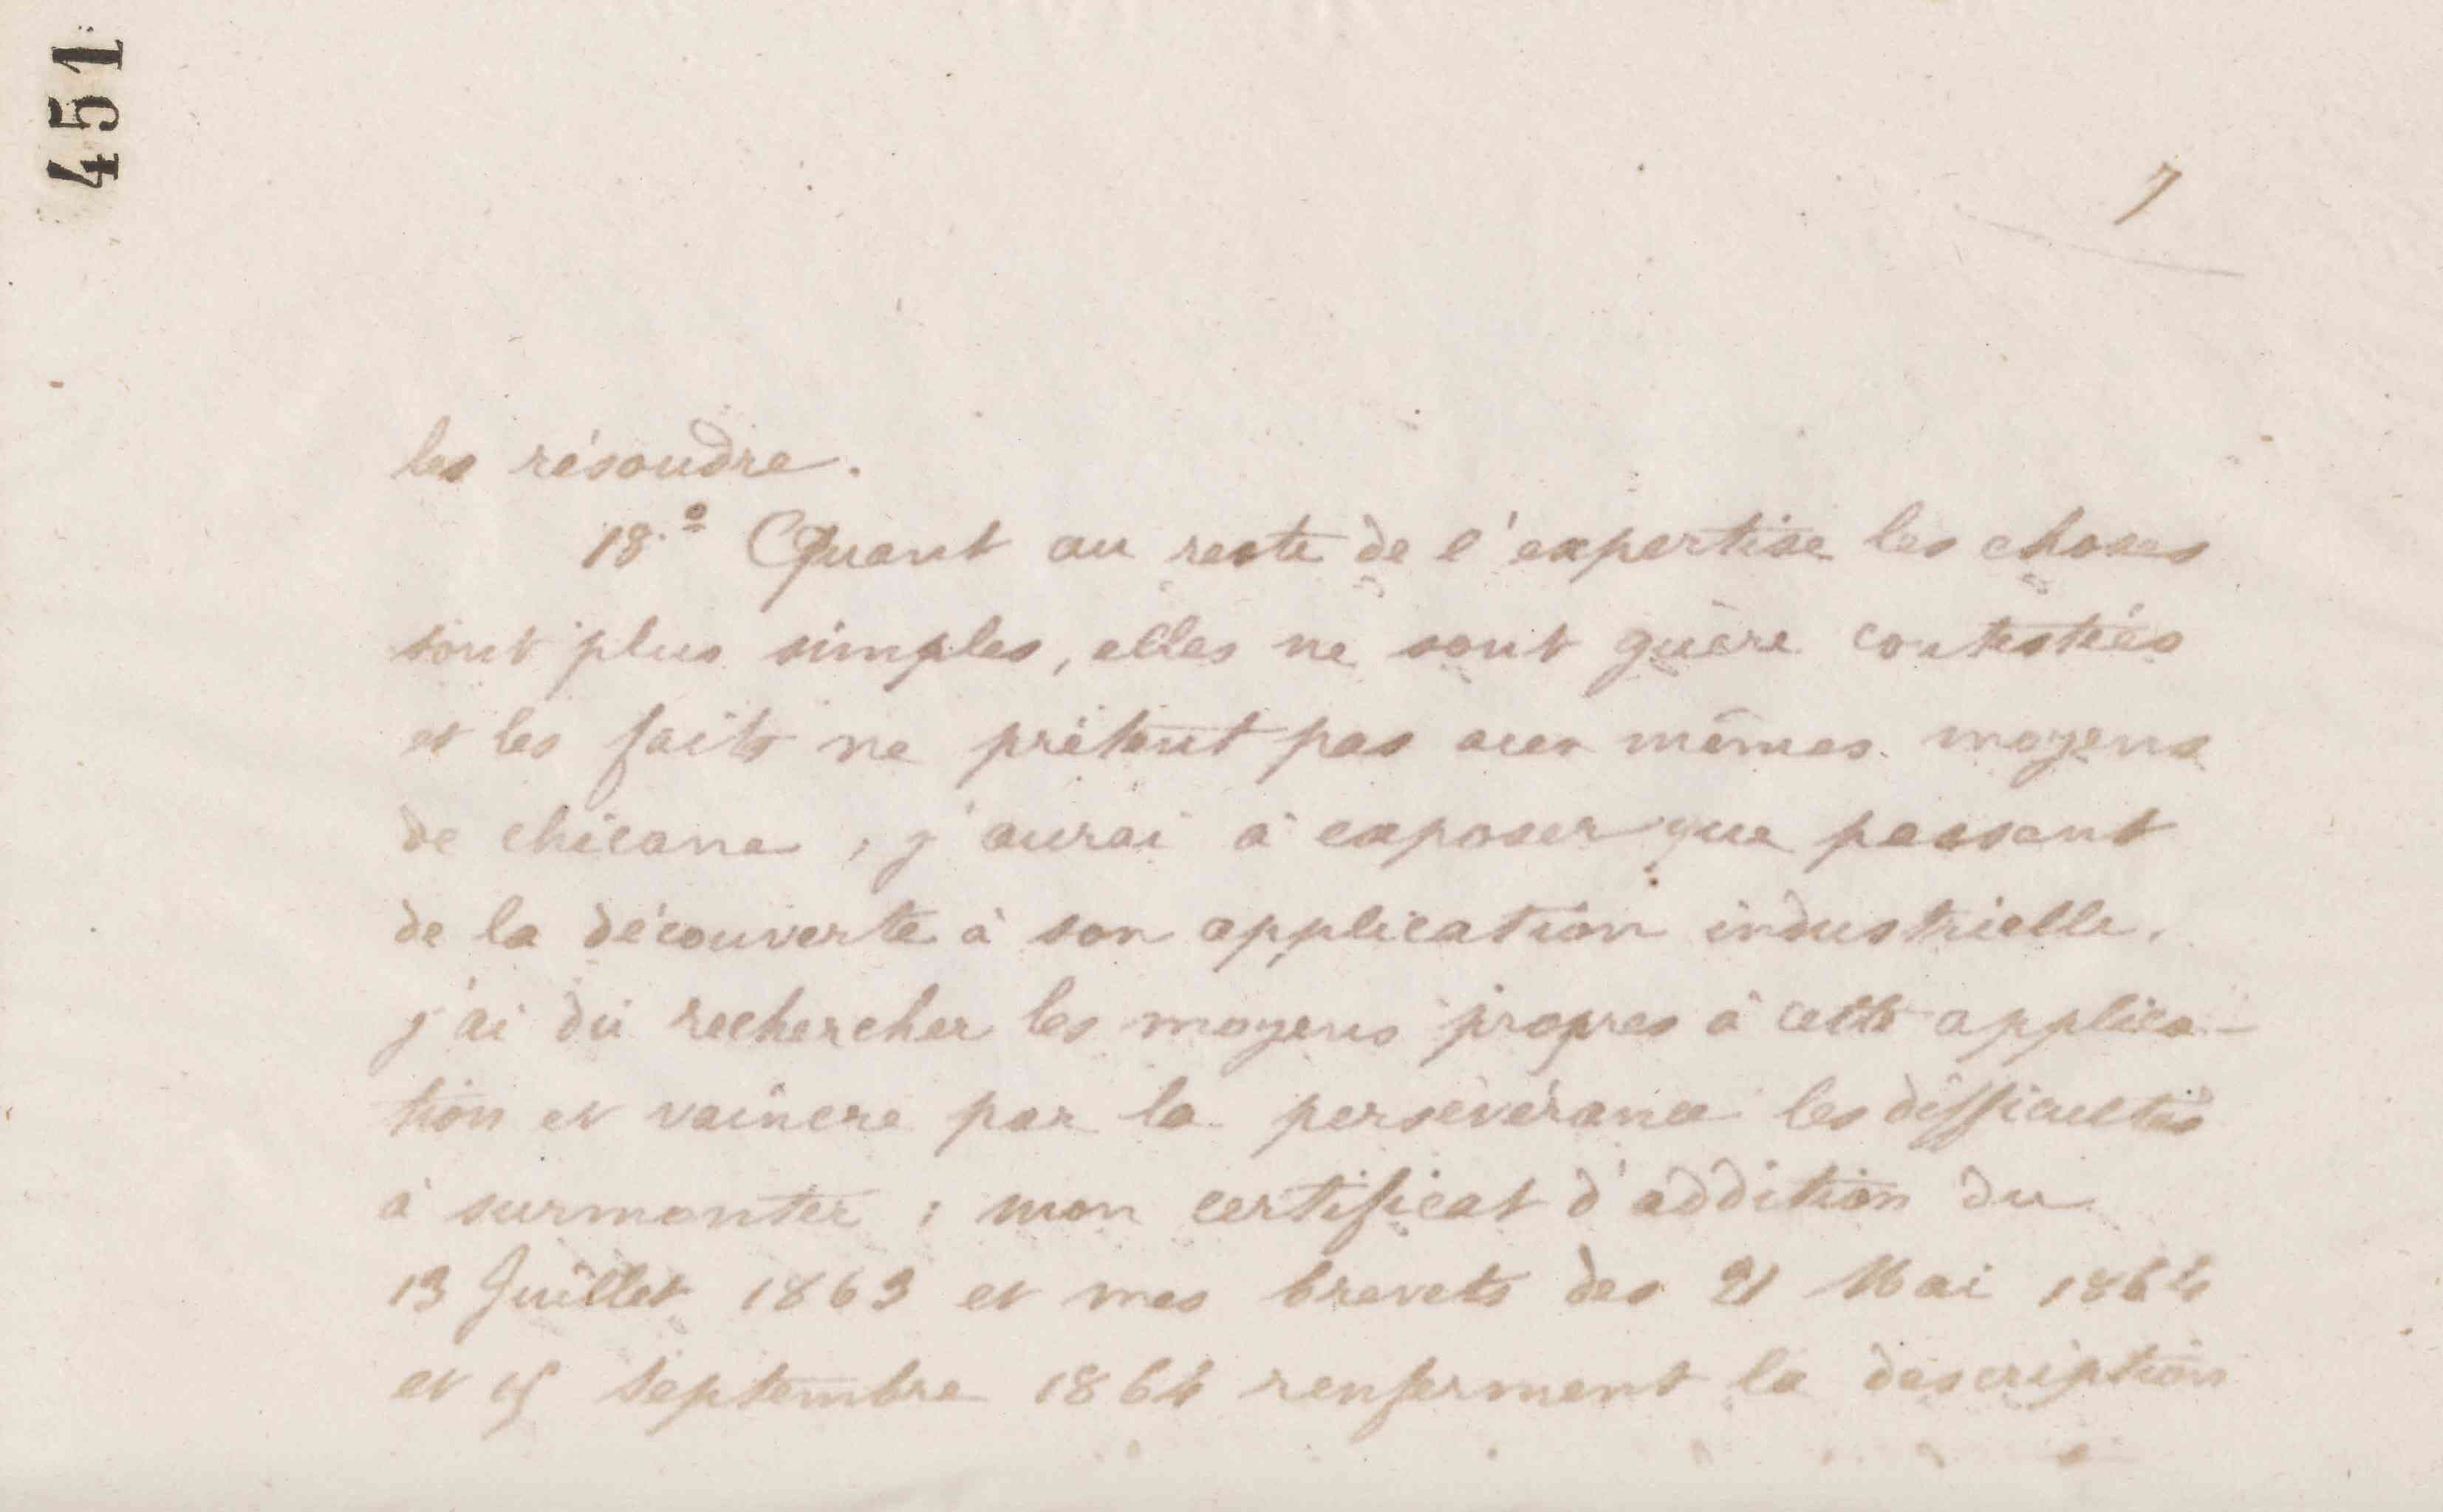 451
7
les résoudre.
18.º Quant au reste de l'expertise les choses
sont plus simples, elles ne sont guère contestées
et les faits ne prêtent pas aux mêmes moyens
de chicane ; j'aurai à exposer que passant
de la découverte à son application industrielle.
j'ai dû rechercher les moyens propres à cette applica-
tion et vaincre par la persévérance les difficultés
à surmonter ; mon certificat d'addition du
13 Juillet 1863 et mes brevets des 21 Mai 1864
et 15 Septembre 1864 renferment la description